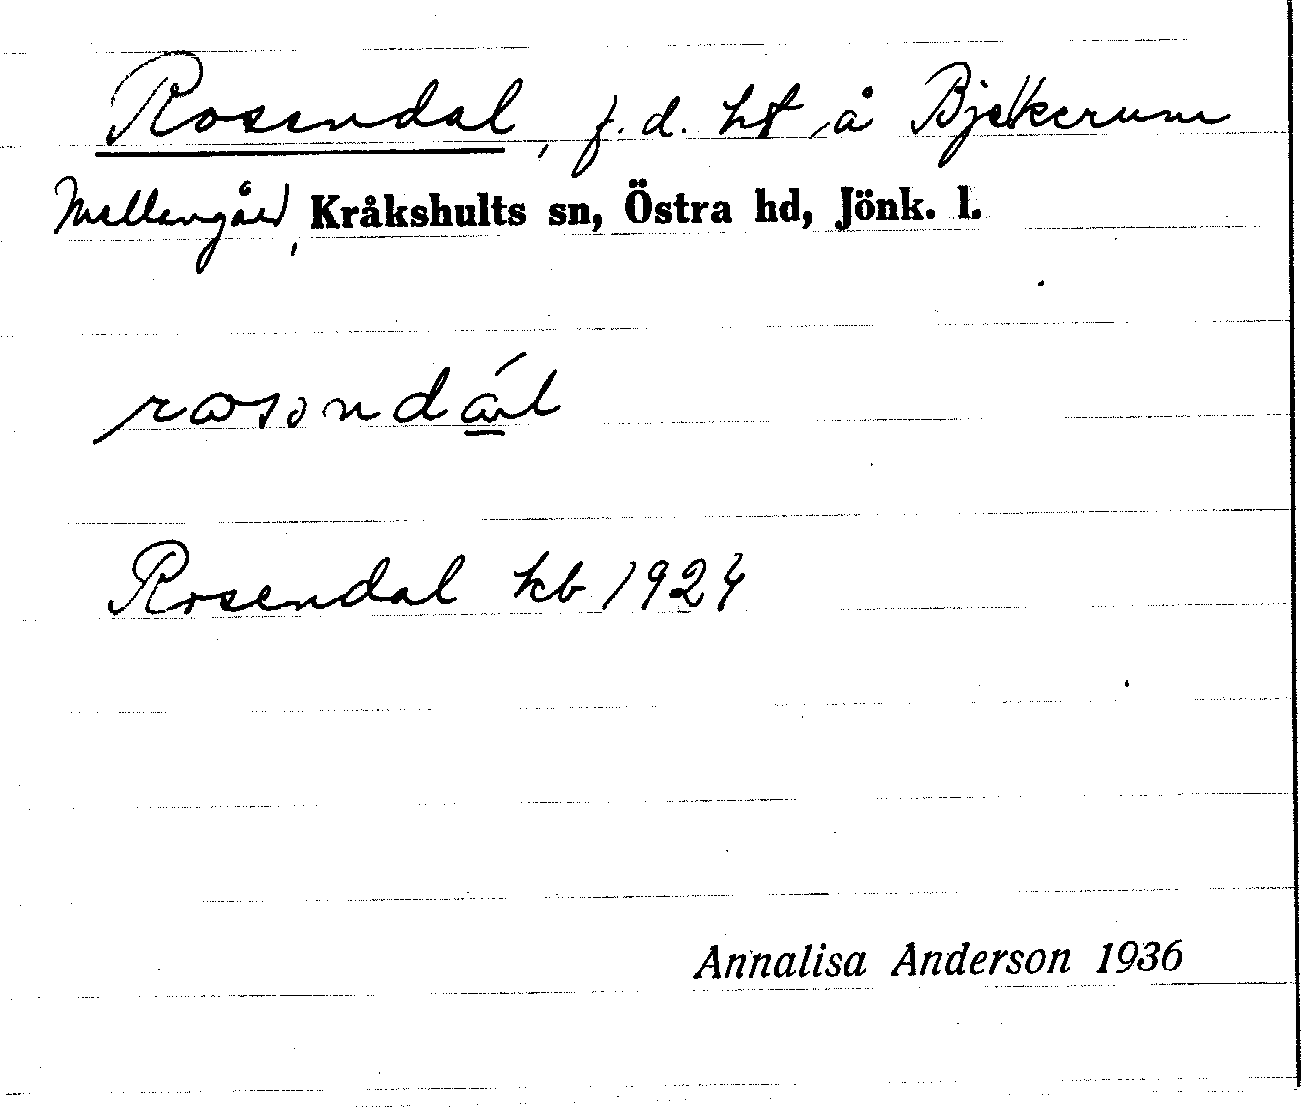 Rosendal, f.d. ht å Bjälkerum
Mellangård, Kråkshults sn, Östra hd, Jönk. l.
rosəndá̱l
Rosendal kb 1924
Annalisa Anderson 1936